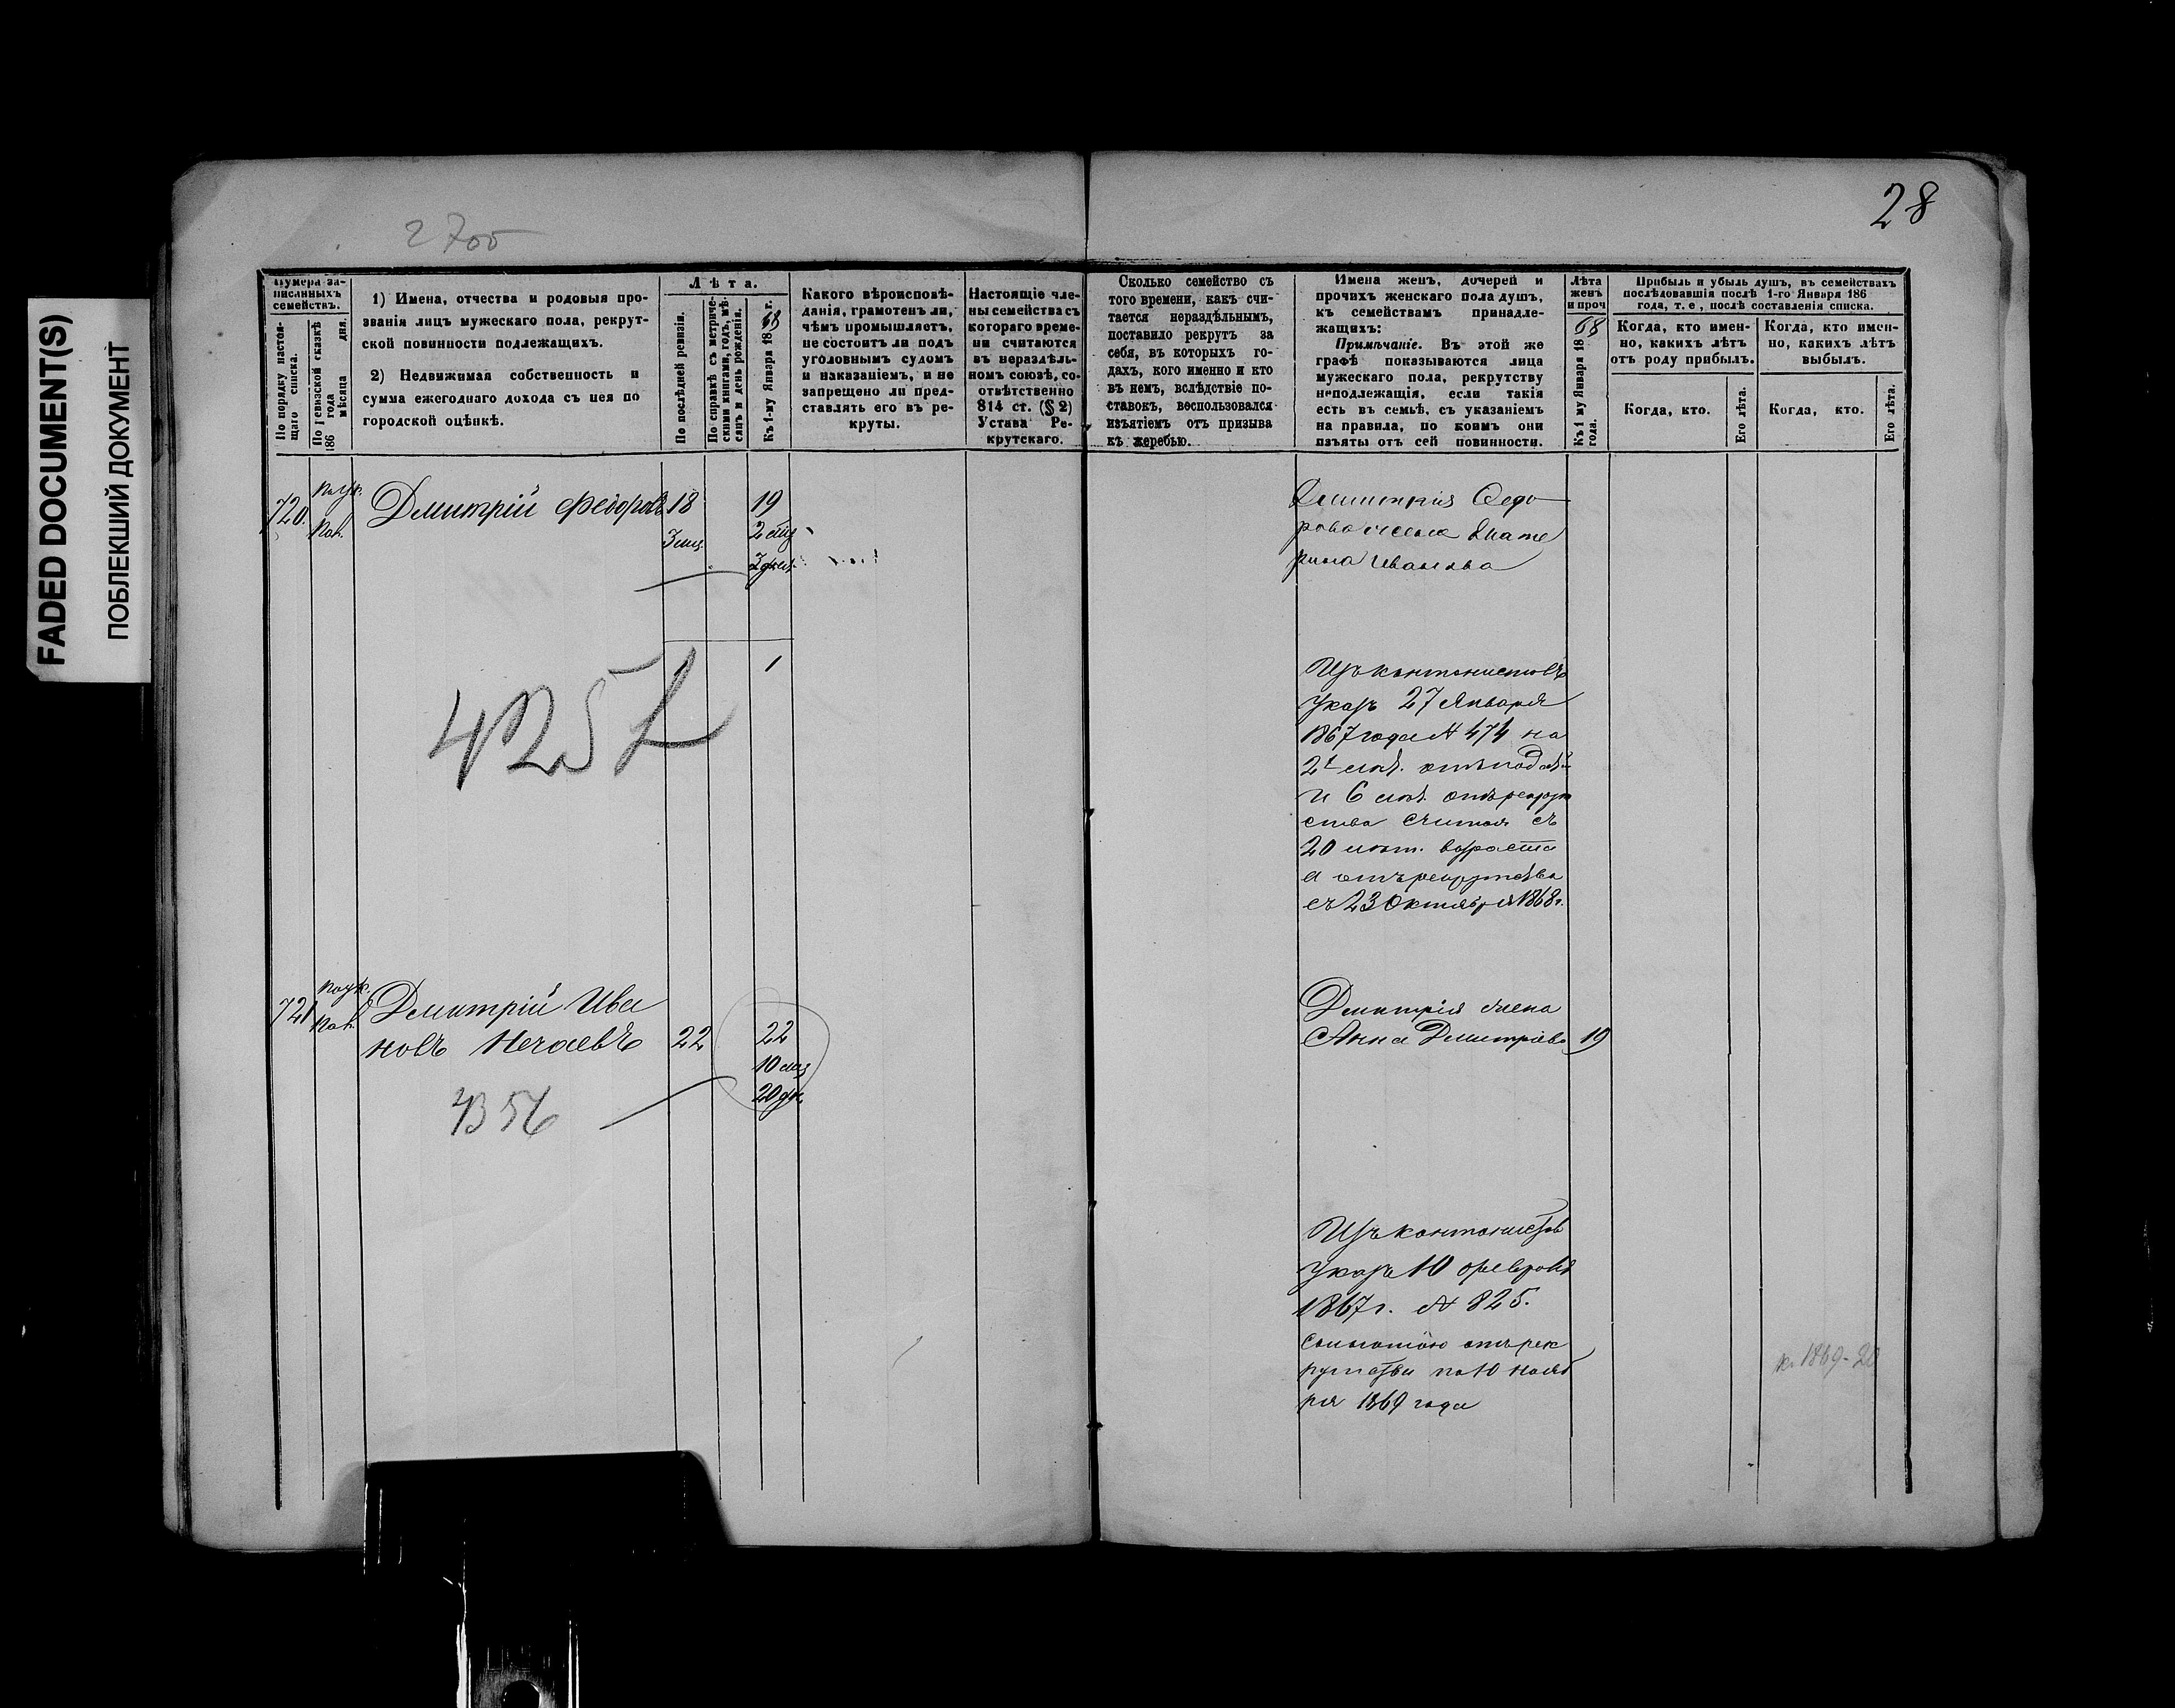 FADED DOCUMENT(S)
ПОБЛЕКШИЙ ДОКУМЕНТ
2700
28
Нумера за-
писанныхъ
семействъ.
По порядку настоя-
щаго списка.
По ревизской сказкѣ
186 года мѣсяца дня.
1) Имена, отчества и родовыя про-
званія лицъ мужескаго пола, рекрут-
ской повинности подлежащихъ.
2) Недвижимая собственность и
сумма ежегоднаго дохода съ нея по
городской оцѣнкѣ.
Лѣта.
По послѣдней ревизіи.
По справкѣ съ метриче-
скими книгами, годъ, мѣ-
сяцъ и день рожденія.
Къ 1-му Января 1868 г.
Какого вѣроисповѣ-
данія, грамотенъ ли,
чѣмъ промышляетъ,
не состоитъ ли подъ
уголовнымъ судомъ
и наказаніемъ, и не
запрещено ли пред-
ставлять его въ ре-
круты.
Настоящіе чле-
ны семейства съ
котораго време-
ни считаются
въ нераздѣль-
номъ союзѣ, со-
отвѣтственно
814 ст. (§ 2)
Устава Ре-
крутскаго.
Сколько семейство съ
того времени, какъ счи-
тается нераздѣльнымъ,
поставило рекрутъ за
себя, въ которыхъ го-
дахъ, кого именно и кто
въ немъ, вслѣдствіе по-
ставокъ, воспользовался
изъятіемъ отъ призыва
къ жеребью.
Имена женъ, дочерей и
прочихъ женскаго пола душъ,
къ семействамъ принадле-
жащихъ:
Примѣчаніе. Въ этой же
графѣ показываются лица
мужескаго пола, рекрутству
неподлежащія, если такія
есть въ семьѣ, съ указаніемъ
на правила, по коимъ они
изъяты отъ сей повинности.
Лѣта
женъ
и проч
Къ 1 му Января 1868
года.
Прибыль и убыль душъ, въ семействахъ
послѣдовавшія послѣ 1-го Января 186
года, т. е, послѣ составленія списка.
Когда, кто имен-
но, какихъ лѣтъ
отъ роду прибылъ.
Когда, кто имен-
но, какихъ лѣтъ
выбылъ.
Когда, кто.
Его лѣта.
Когда, кто.
Его лѣта.
720.
Дмитрій Федоровъ 18 19
3 мѣц. 2 мѣц
3 дня.
1 1
Дмитрія Федо
рова жена Екате
рина Иванова
Изъ кантонистовъ
указъ 27 Января
1867 года № 474 на
2 лѣт. отъ податей
и 6 лѣт. отъ рекрут
ства считая съ
20 лѣт. возраста
а отъ рекрутства
съ 23 Октября 1868 г.
721
Дмитрій Ива
новъ Нечаевъ 22 22
10 мѣц
20 дн.
4356
Дмитрія жена
Анна Дмитріева 19
Изъ кантонистов
указъ 10 февраля
1867 г. № 825.
съ льготою отъ рек
рутства по 10 нояб
ря 1869 года
1869-20